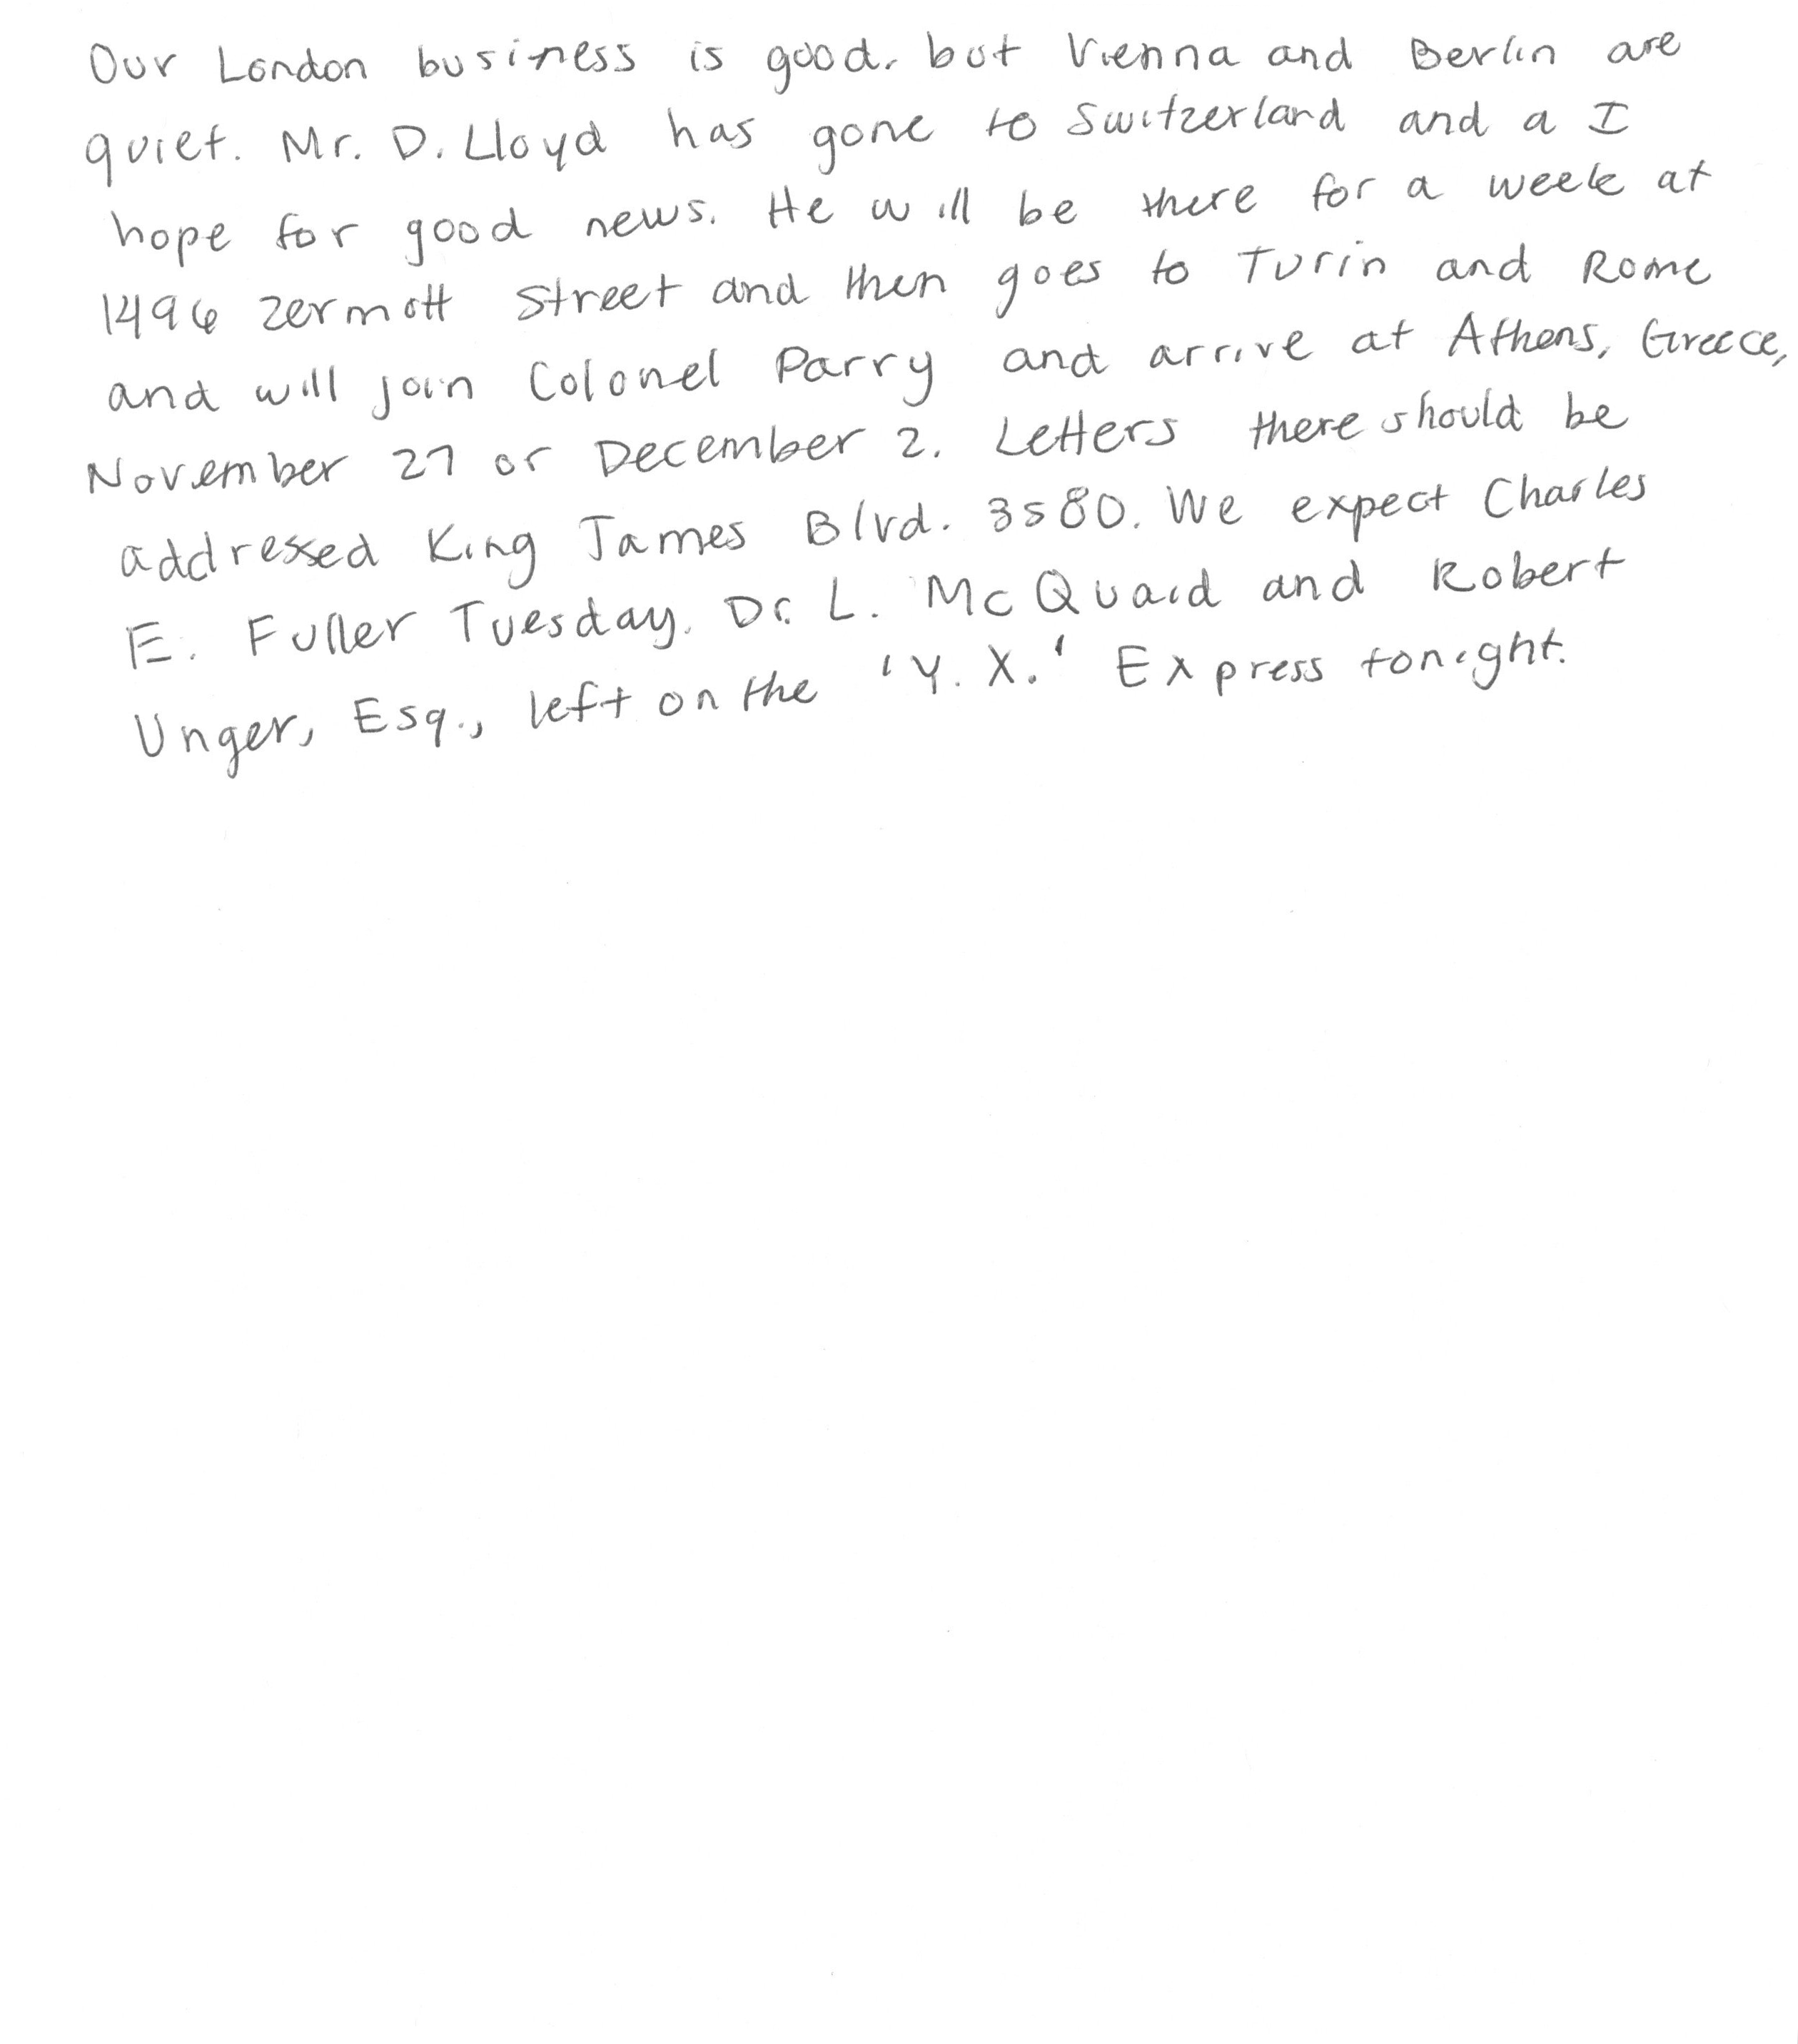 Our London business is good, but Vienna and Berlin are
quiet. Mr. D. Lloyd has gone to Switzerland and a I
hope for good news. He will be there for a week at
1496 Zermott Street and then goes to Turin and Rome
and will join Colonel Parry and arrive at Athens, Greece,
November 27 or December 2. Letters there should be
addressed King James Blvd. 3580. We expect Charles
E. Fuller Tuesday. Dr. L. McQuaid and Robert
Unger, Esq., left on the 'Y. X.' Express tonight.